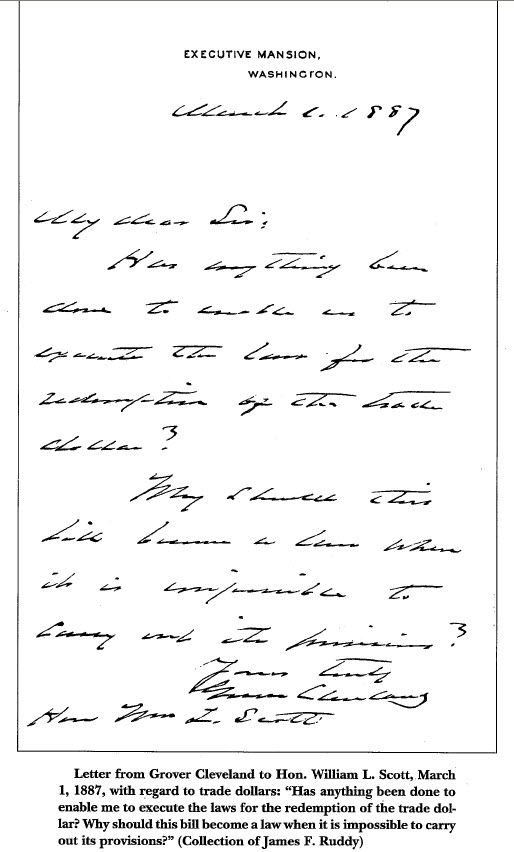 EXECUTIVE MANSION,
WASHINGTON.
March 1. 1887
My dear Sir:
Has anything been
done to enable me to
execute the laws for the
redemption of the trade
dollar?
Why should this
bill become a law when
it is impossible to
carry out its provisions?
Yours truly
Grover Cleveland
Hon Wm L. Scott
Letter from Grover Cleveland to Hon. William L. Scott, March
1, 1887, with regard to trade dollars: “Has anything been done to
enable me to execute the laws for the redemption of the trade dol-
lar? Why should this bill become a law when it is impossible to carry
out its provisions?” (Collection of James F. Ruddy)